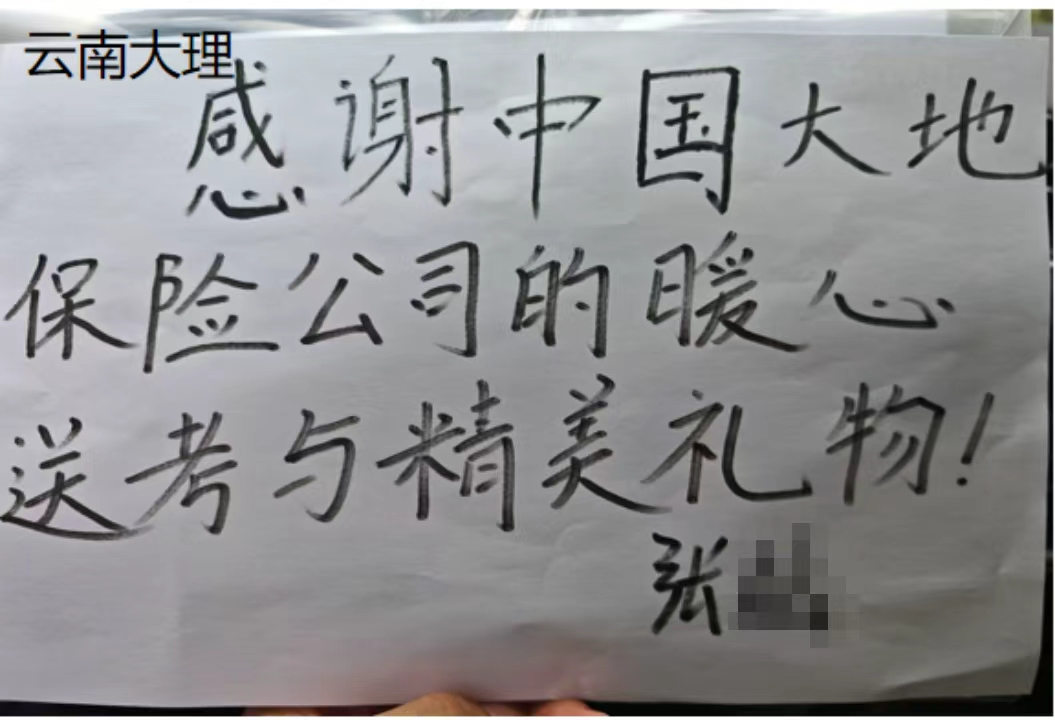 云南大理
感谢中国大地
保险公司的暖心
送考与精美礼物！
张